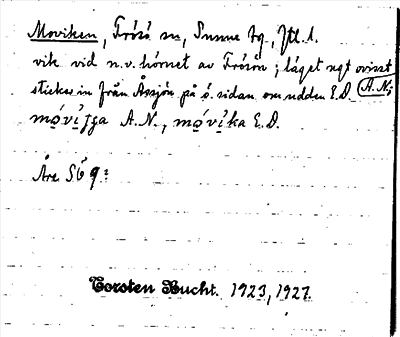 Moviken, Frösö sn, Sunne tg, Jtl. l.
vik vid n.v. hörnet av Frösön; läget ngt ovisst
sticker in från Åssjön på ö. sidan om udden E.D. A.N.;
mo̱vi̱gga A.N., mo̱vi̱ka E.D.
Åre SÖ 9:
Torsten Bucht. 1923, 1927.